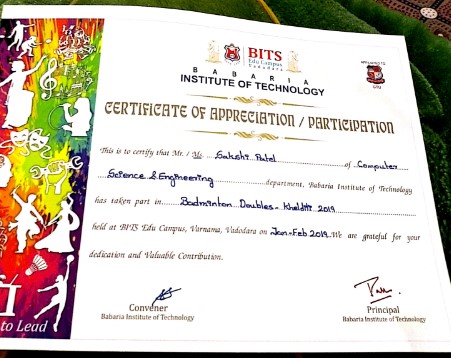 BITS
Edu Campus
Vadodara
BABARIA
INSTITUTE OF TECHNOLOGY
GTU
CERTIFICATE OF APPRECIATION / PARTICIPATION
This is to certify that Mr. / Ms. Sakshi Patel of Computer
Science & Engineering department, Babaria Institute of Technology
has taken part in Badminton Doubles - 2019
held at BITS Edu Campus, Varnama, Vadodara on Jan-Feb 2019. We are grateful for your
dedication and Valuable Contribution.
Convener
Babaria Institute of Technology
Principal
Babaria Institute of Technology
to Lead